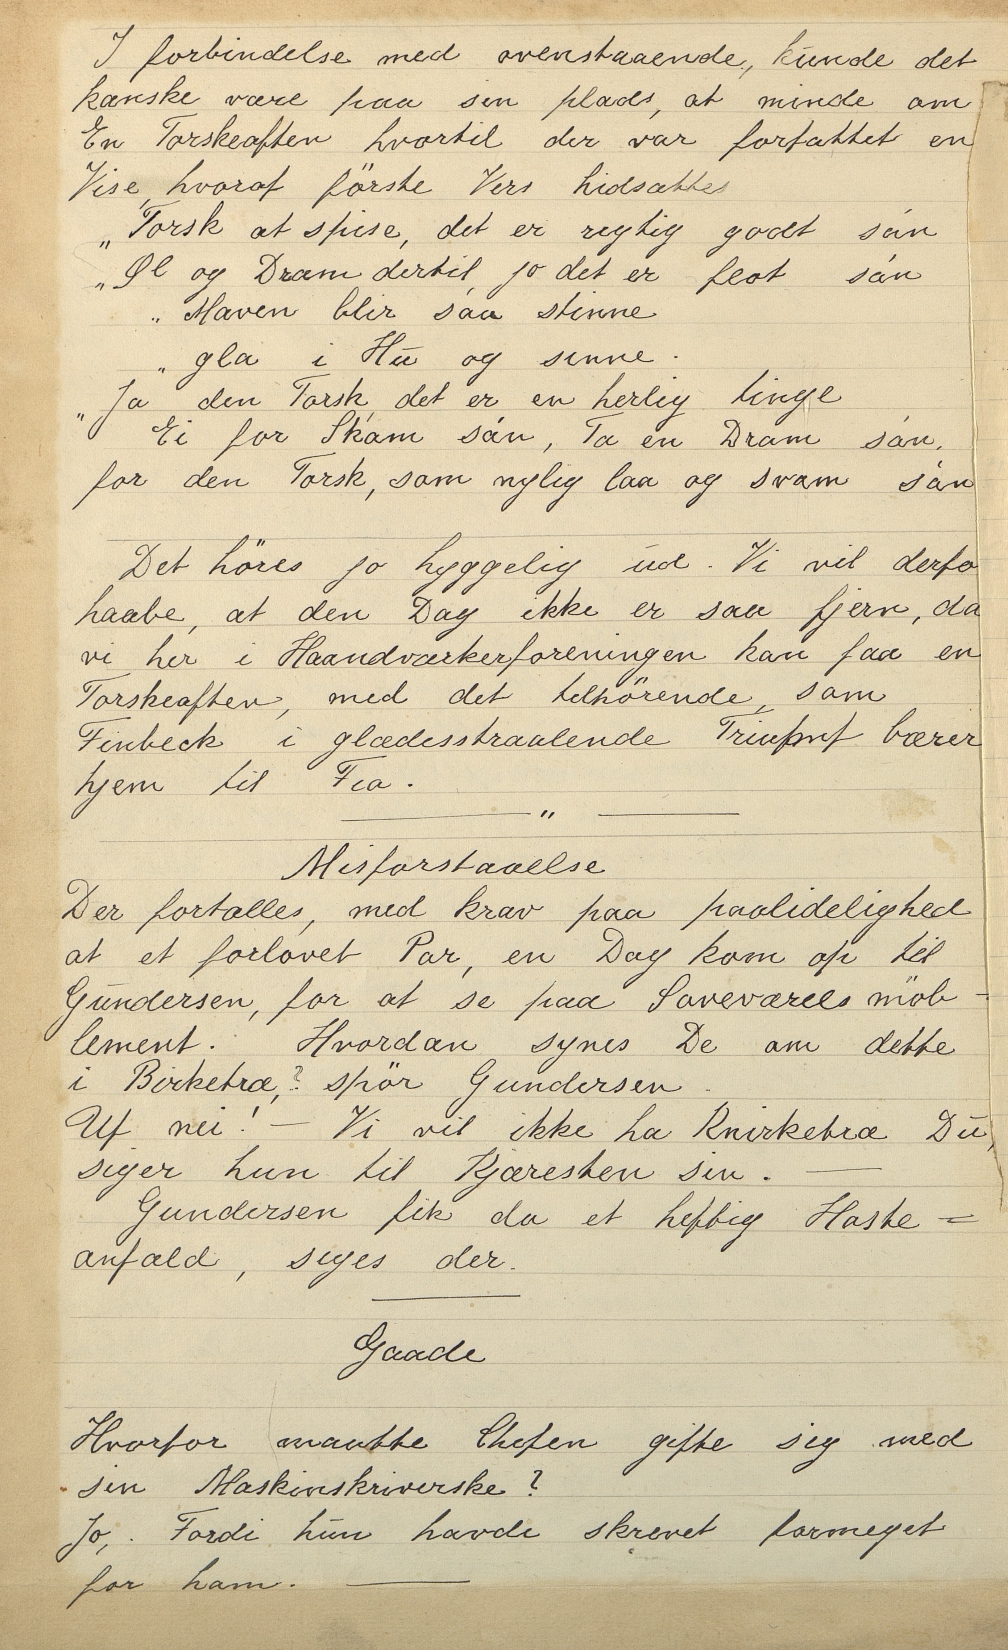 I forbindelse med ovenstaaende, kunde det
kanske være paa sin plads, at minde om
En Torskeaften hvortil der var forfattet en
Vise, hvoraf förste Vers hidsættes
„Torsk at spise, det er regtig godt sán
„Øl og Dram dertil, jo det er flot sán
„Maven blir saa stinne
„gla i Hu og sinne.
„Ja den Torsk det er en herlig tinge
Ei for Skam sán, Ta en Dram sán,
for den Torsk, som nylig laa og svam sán
Det höres jo hyggelig ud. Vi vil derfo
haabe, at den Dag ikke er saa fjern, da
vi her i Haandværkerforeningen kan faa en
Torskeaften, med det tilhörende, som
Finbeck i glædesstraalende Triumf bærer
hjem til Fia.
— „ —
Misforstaaelse
Der fortælles, med krav paa paalidelighed
at et forlovet Par, en Dag kom op til
Gundersen, for at se paa Soveværels möb-
lement. Hvordan synes De om dette
i Birketræ,? spör Gundersen.
Uf nei! — Vi vil ikke ha Knirketræ Du,
siger hun til Kjæresten sin. —
Gundersen fik da et heftig Hoste=
anfald, siges der.
Gaade
Hvorfor maatte Chefen gifte sig med
sin Maskinskriverske?
Jo,. Fordi hun havde skrevet formeget
for ham. —